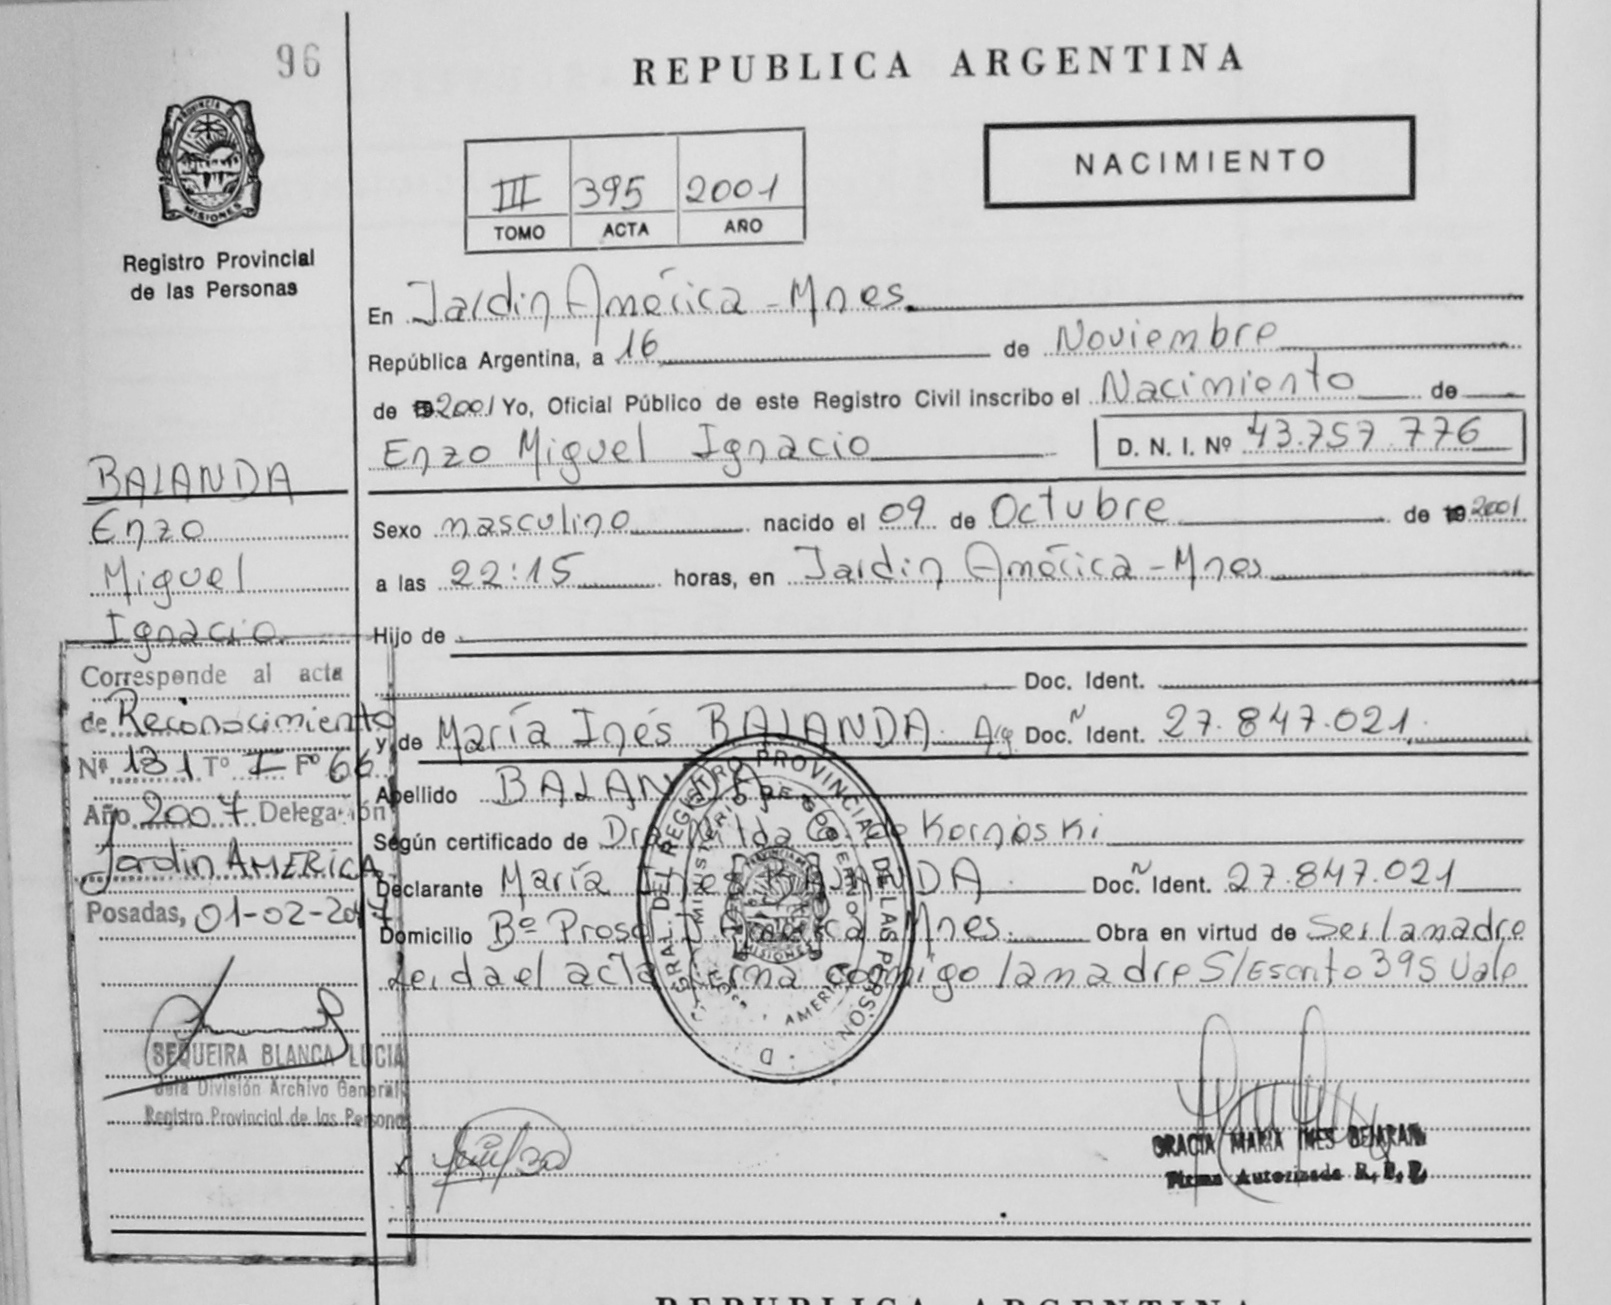 96
REPUBLICA ARGENTINA
PROVINCIA DE
MISIONES
Registro Provincial
de las Personas
NACIMIENTO
III 395 2001
TOMO ACTA AÑO
En Jardín América - Mnes.
República Argentina, a 16 de Noviembre
de 19 2001 Yo, Oficial Público de este Registro Civil inscribo el Nacimiento de
Enzo Miguel Ignacio D. N. I. Nº 43.757.776
Sexo masculino nacido el 09 de Octubre de 19 2001
a las 22:15 horas, en Jardín América - Mnes
Hijo de
Doc. Ident.
y de María Inés BALANDA. Arg Doc. N Ident. 27.847.021.
Apellido BALANDA
Según certificado de Dra. de Kornoski
Declarante María Inés BALANDA Doc. N Ident. 27.847.021
Domicilio Bº Prosol J. América Mnes. Obra en virtud de Ser la madre
Leída el acta firma conmigo la madre S/Escrito 395 Vale
BALANDA
Enzo
Miguel
Ignacio
Corresponde al acta
de Reconocimiento
Nº 131 Tº I Fº 66
Año 2007 Delegación
Jardín AMERICA
Posadas, 01-02-
SEQUEIRA BLANCA LUCIA
Jefa División Archivo General
Registro Provincial de las Personas
GRAL. DEL REGISTRO PROVINCIAL DE LAS PERSON
MINISTERIO DE GOBIERNO
MISIONES
AMERICA
GRACIA MARIA INES BEJARAN
Firma Autorizada R. P. P.
REPUBLICA ARGENTINA